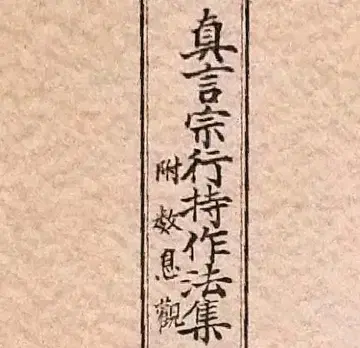 真言宗行持作法集
附数息觀